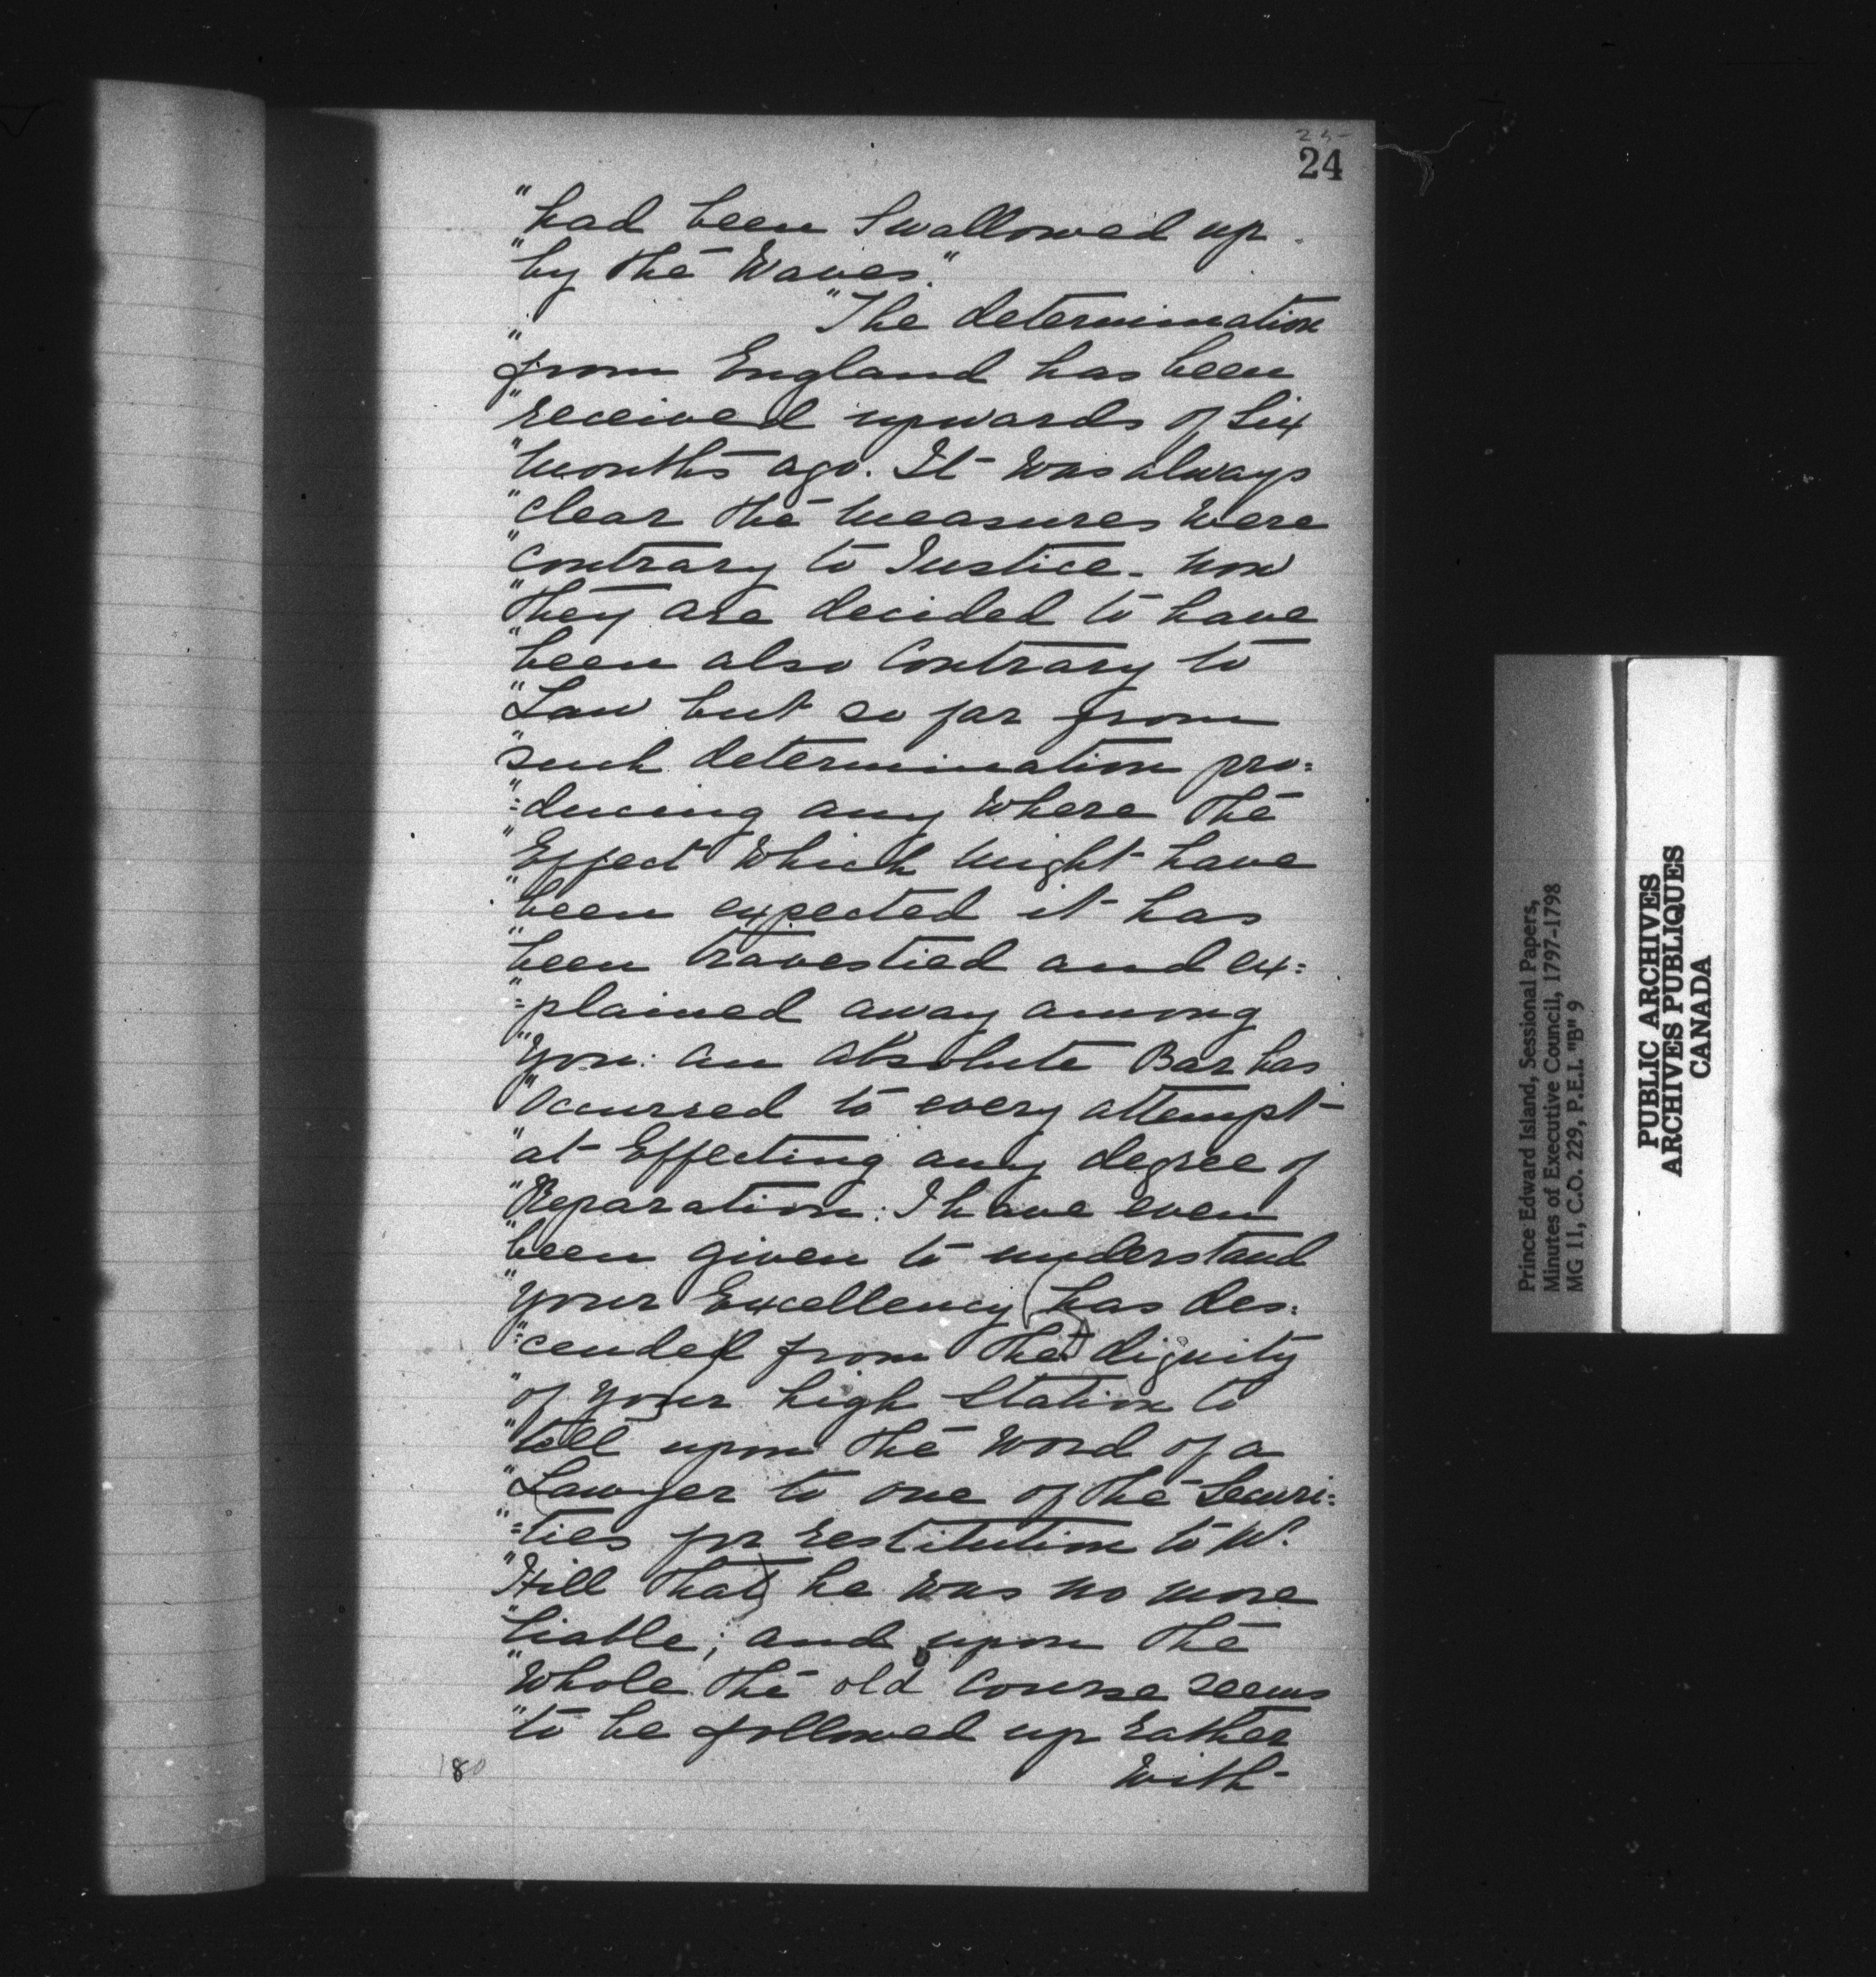 25
24
"had been Swallowed up
"by the Waves."
"The determination
"from England has been
"received upwards of Six
"Months ago. It was always
"Clear the Measures Were
"Contrary to Justice - now
"they are decided to have
"been also Contrary to
"Law but so far from
"such determination pro=
"=ducing any Where the
"Effect Which might have
"been expected it has
"been travestied and ex=
"=plained away among
"You: an absolute Bar has
"Occurred to every attempt
"at Effecting any degree of
"Reparation: I have even
"been given to understand
"your Excellency has des=
"=cended from the dignity
"of your high Station to
"tell upon the Word of a
"Lawyer to one of the Securi=
"=ties for restitution to Mr.
"Hill that he was no more
"liable; and upon the
"Whole the old Course seems
"to be followed up rather
With
180
Prince Edward Island, Sessional Papers,
Minutes of Executive Council, 1797-1798
MG 11, C.O. 229, P.E.I. "B" 9
PUBLIC ARCHIVES
ARCHIVES PUBLIQUES
CANADA